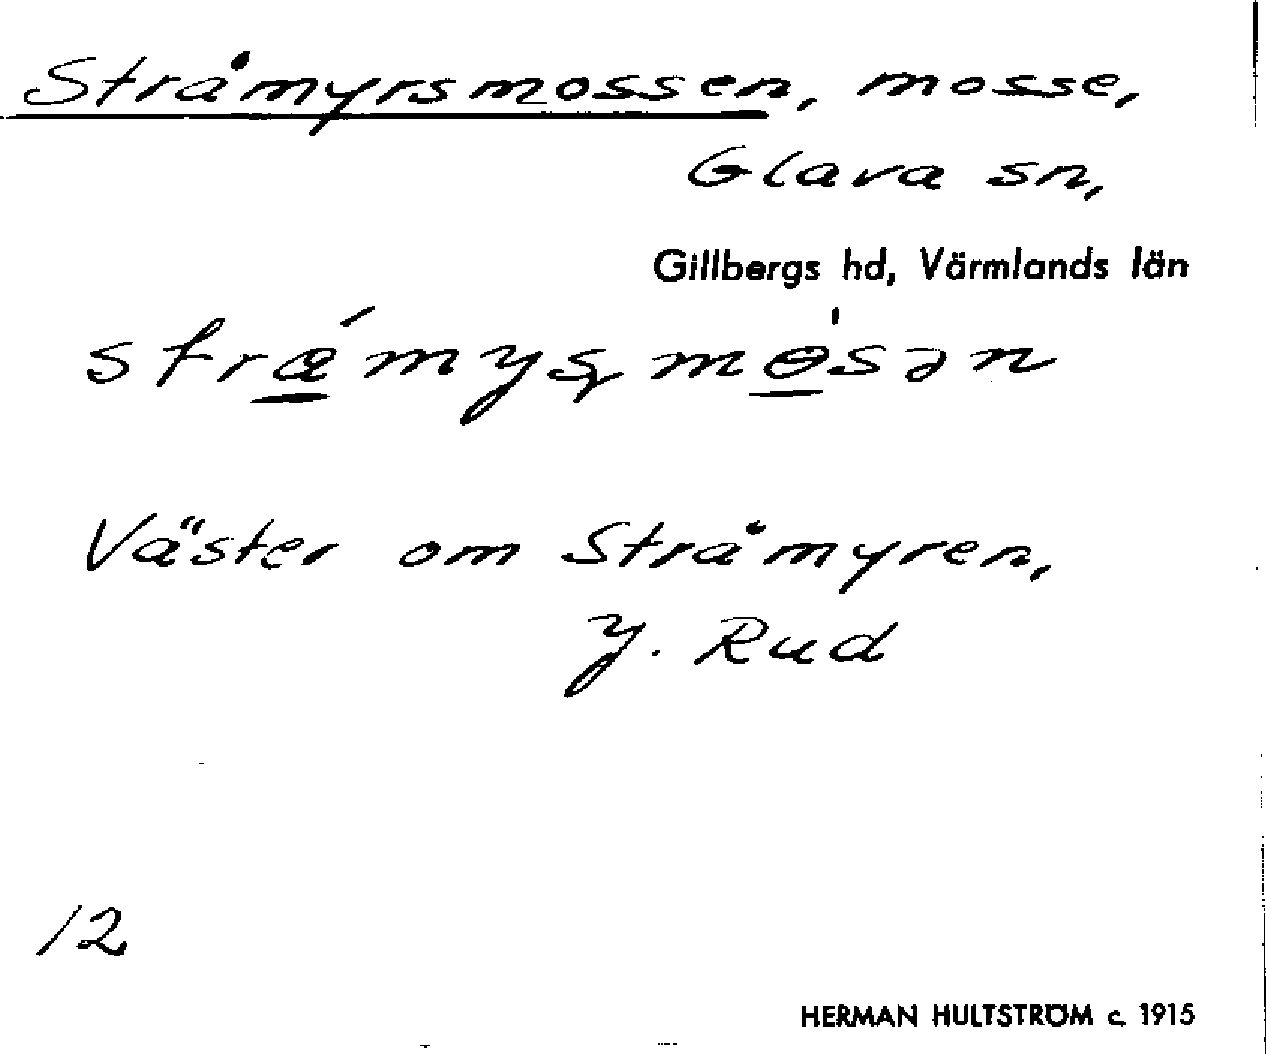 Stråmyrsmossen, mosse,
Glava sn,
Gillbergs hd, Värmlands län
Väster om Stråmyren,
y. Rud
12
HERMAN HULTSTRÖM c. 1915